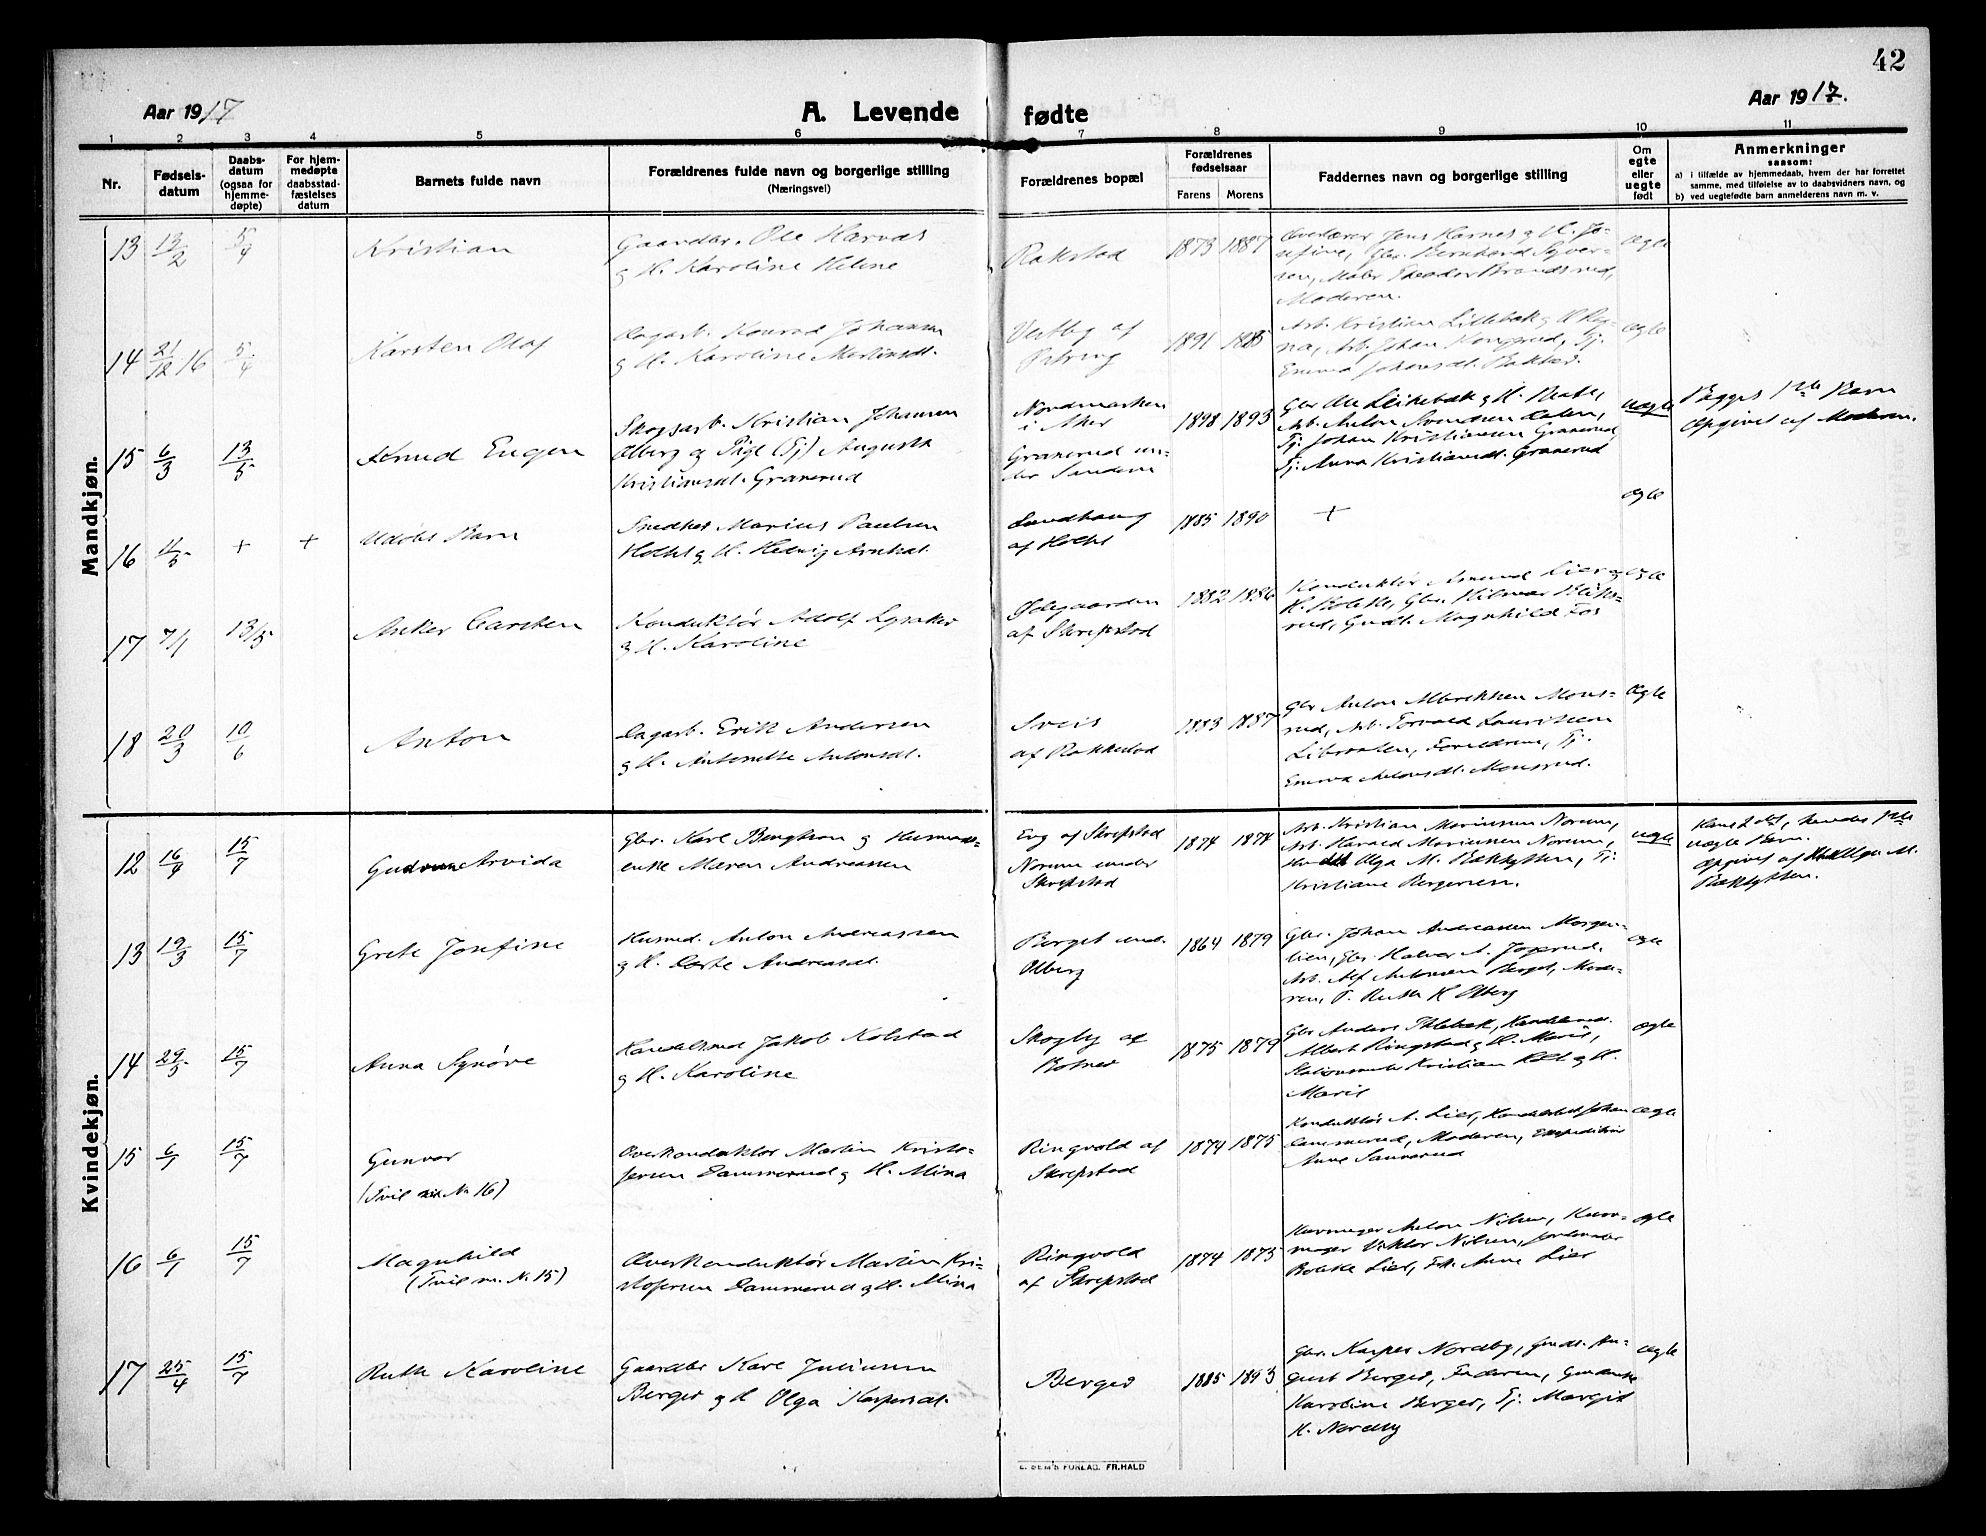 42
Aar 1917
A. Levende fødte
Aar 1917.
1 2 3 4 5 6 7 8 9 10 11
Nr.
Fødsels-
datum
Daabs-
datum
(ogsaa for
hjemme-
døpte)
For hjem-
medøpte
daabsstad-
fæstelses
datum
Barnets fulde navn
Forældrenes fulde navn og borgerlige stilling
(Næringsvei)
Forældrenes bopæl
Forældrenes
fødselsaar
Farens Morens
Faddernes navn og borgerlige stilling
Om
egte
eller
uegte
født
Anmerkninger
saasom:
a) i tilfælde av hjemmedaab, hvem der har forrettet
samme, med tilføielse av to daabsvidners navn, og
b) ved uegtefødte barn anmelderens navn m. v.
Mandkjøn.
13 13/2 5/4 Kristian
Gaardbr. Ole Harnæs
og H. Karoline Helene
Rakstad
1873 1887
Jens Harnes og H. Jo-
sefine, Gbr. Bernhard Syver-
sen, Theodor Brandsrud,
Moderen.
ægte
14 21/12 16 5/4 Karsten Olaf
Dagarb. Konrad Johansen
og H. Karoline Martinsdt.
Vestby af
1891 1885
Arb. Kristian Lillebæk og H. Reg-
na, Arb. Johan Kongsrud, Tj.
Emma Johansdt. Bakken.
ægte
15 6/3 13/5 Knud Eugen
Skogsarb. Kristian Johansen
Olberg og Pige (Tj) Augusta
Kristiansdt. Granerud
Nordmarken
i Aker
Granerud un-
der Sandem
1898 1893
Gbr Ole Leikebæk og H. Beate,
Arb. Anton Svendsen Dalen,
Tj. Johan Kristiansen Granerud
Tj. Anna Kristiansdt. Granerud
uægte
Begges 1ste Barn
Opgivet af Moderen.
16 11/5 + + Udøbt Barn
Snedker Marius Paulsen
Holtet og H. Hedvig
Sandhaug
af Holtet
1885 1890
+
ægte
17 7/1 13/5 Anker Carsten
Konduktør Adolf Lysaker
og H. Karoline
Ødegaarden
af Skrepstad
1882 1886
Konduktør Amund Lier og
H. Bolette, Gbr. Hilmar
rud, Gudt. Magnhild Fos
ægte
18 20/3 10/6 Anton
Dagarb. Erik Andersen
og H. Antonette Antonsdt.
Sveis
af Rakkestad
1883 1887
Gbr Anton Albrektsen Mons-
rud, Arb. Torvald Lauritsen
Forældrene, Tj.
Emma Antonsdt. Monsrud.
ægte
Kvindekjøn.
12 16/4 15/7 Gudrun Arvida
Gbr. Karl Bengtson og Husmands-
enke Maren Andreassen
Eng af Skrepstad
Norum under
Skrepstad
1874 1874
Arb. Kristian Mariussen Norum,
Arb. Harald Mariussen Norum,
Olga M. Bækkytten, Tj.
Kristiane Bergersen.
uægte
Hans 2det, hendes 1ste
uægte Barn.
Opgivet af Olga M.
Bækkytten.
13 19/3 15/7 Grete Josefine
Husmd. Anton Andreassen
og H. Dorte Andreasdt.
Berget und.
Olberg
1864 1879
Gbr. Johan Andreassen Morgen-
lien, Gbr. Halvor A.
Arb. Alf Antonsen Berget, Mode-
ren, P. Ruth H. Olberg
ægte
14 29/5 15/7 Anna Synøve
Handelsmd Jakob Kolstad
og H. Karoline
Skogly af
Botner
1875 1879
Gbr Anders Ihlebæk, Handlende
Albert Ringstad og H. Marie,
Stationsmester Kristian Holt og H.
Marie
ægte
15 6/1 15/7 Gunvor
(Tvil. m. No 16)
Overkonduktør Martin Kristo-
fersen Dammerud og H. Mina
Ringvold af
Skrepstad
1874 1875
Konduktør A. Lier, Johan
Dammerud, Moderen,
Anne
ægte
16 6/1 15/7 Magnhild
(Tvil. m. No. 15)
Overkonduktør Martin Kri-
stofersen Dammerud og H. Mina
Ringvold
af Skrepstad
1874 1875
Kurvmager Anton Nilsen, Kurv-
mager Viktor Nilsen, Jordmoder
Bolette Lier, Frk. Anne Lier
ægte
17 25/4 15/7 Ruth Karoline
Gaardbr Karl Juliussen
Berger og H Olga Kaspersdt.
Berger
1885 1893
Gbr. Kasper Nordby, Gaardt. Au-
gust Berger, Faderen, Gaardenke
Karoline Berger, Tj. Margit
H. Nordby
ægte
E. SEM'S FORLAG. FR.HALD